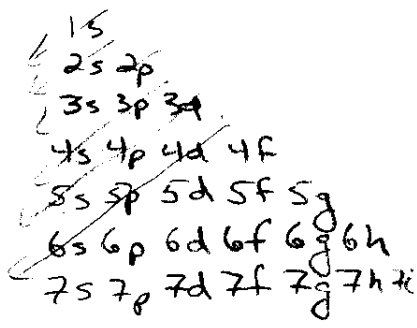 1s
2s 2p
3s 3p 3d
4s 4p 4d 4f
5s 5p 5d 5f 5g
6s 6p 6d 6f 6g 6h
7s 7p 7d 7f 7g 7h 7i